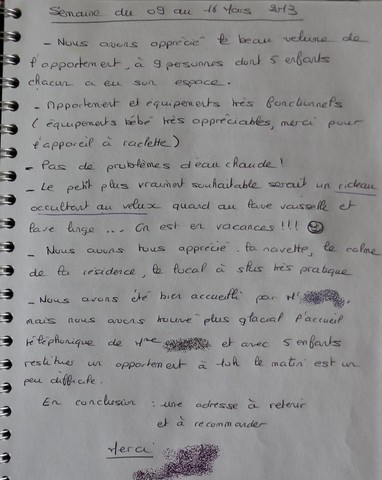 Semaine du 09 au 16 Mars 2013
- Nous avons apprécié le beau volume de
l'appartement, à 9 personnes dont 5 enfants
chacun a eu son espace.
- Appartement et équipements très fonctionnels
(équipements bébé très appréciables, merci pour
l'appareil à raclette)
- Pas de problèmes d'eau chaude!
- Le petit plus vraiment souhaitable serait un rideau
occultant au velux quand au lave vaisselle et
lave linge ... On est en vacances !!!
- Nous avons tous apprécié la navette, le calme
de la résidence, le local à skis très pratique
- Nous avons été bien accueilli par Mr
mais nous avons trouvé plus glacial l'accueil
téléphonique de Mme et avec 5 enfants
restituer un appartement à 10h le matin est un
peu difficile.
En conclusion : une adresse à retenir
et à recommander
Merci